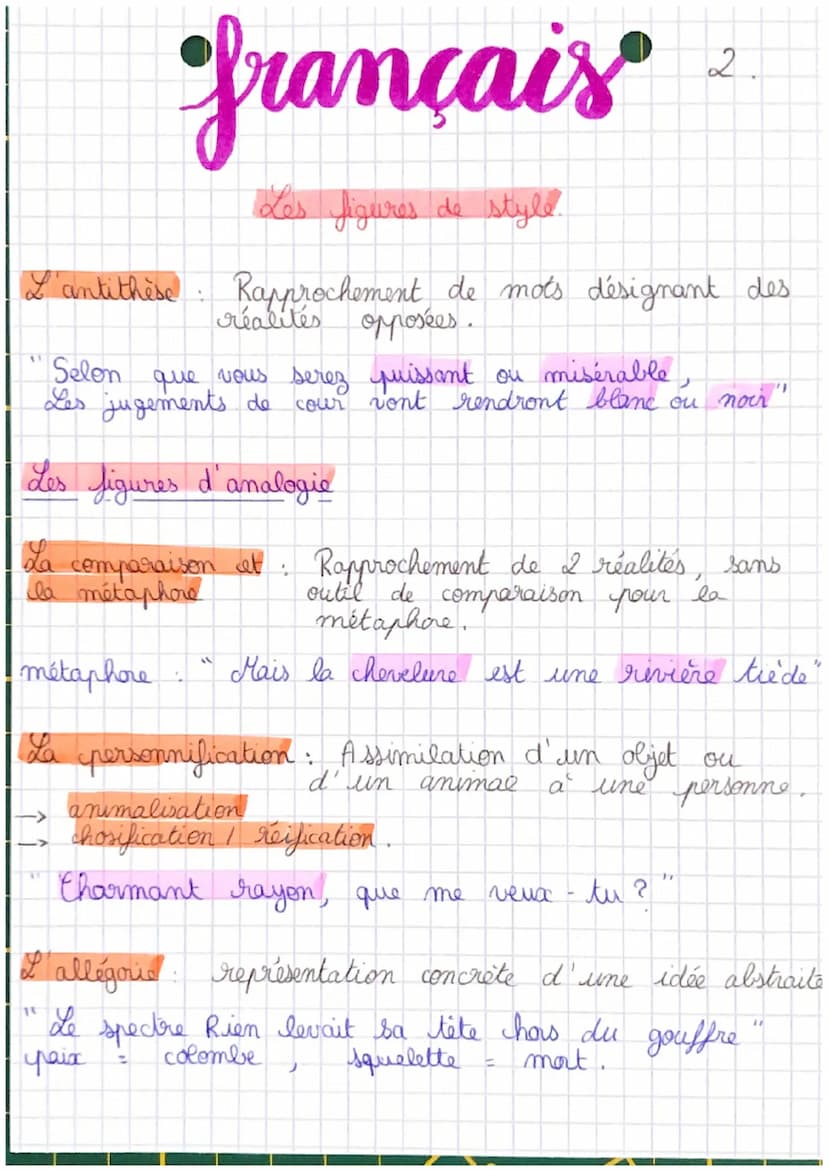 français 2.
Les figures de style.
L'antithèse : Rapprochement de mots désignant des
réalités opposées.
" Selon que vous serez puissant ou misérable,
Les jugements de cour vont rendront blanc ou noir"
Les figures d'analogie
La comparaison et : Rapprochement de 2 réalités, sans
la métaphore outil de comparaison pour la
métaphore.
métaphore : " Mais la chevelure est une rivière tiède"
La personnification : Assimilation d'un objet ou
d'un animal à une personne.
→ animalisation
→ chosification / réification.
" Charmant rayon, que me veux - tu ? "
L'allégorie : représentation concrète d'une idée abstraite
" Le spectre Rien levait sa tête chors du gouffre "
paix = colombe, squelette = mort.